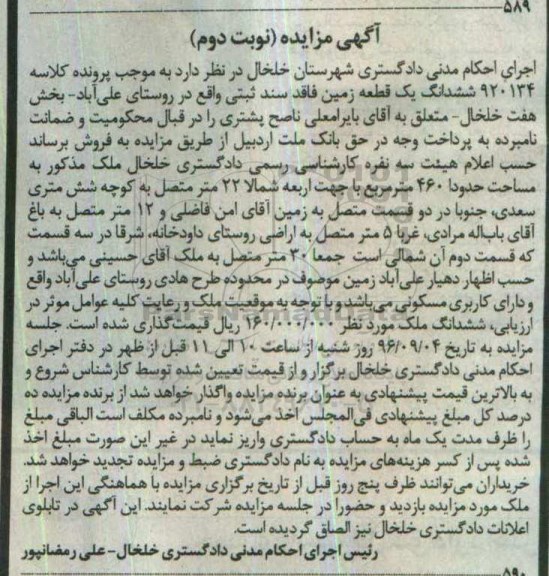 ۵۸۹
آگهی مزایده (نوبت دوم)
اجرای احکام مدنی دادگستری شهرستان خلخال در نظر دارد به موجب پرونده کلاسه
۹۲۰۱۳۴ ششدانگ یک قطعه زمین فاقد سند ثبتی واقع در روستای علی‌آباد- بخش
هفت خلخال- متعلق به آقای بایرامعلی ناصح پشتری را در قبال محکومیت و ضمانت
نامبرده به پرداخت وجه در حق بانک ملت اردبیل از طریق مزایده به فروش برساند
حسب اعلام هیئت سه نفره کارشناسی رسمی دادگستری خلخال ملک مذکور به
مساحت حدودا ۴۶۰ مترمربع با جهت اربعه شمالا ۲۲ متر متصل به کوچه شش متری
سعدی، جنوبا در دو قسمت متصل به زمین آقای امن فاضلی و ۱۲ متر متصل به باغ
آقای باب‌اله مرادی، غربا ۵ متر متصل به اراضی روستای داودخانه، شرقا در سه قسمت
که قسمت دوم آن شمالی است جمعا ۳۰ متر متصل به ملک آقای حسینی می‌باشد و
حسب اظهار دهیار علی‌آباد زمین موصوف در محدوده طرح هادی روستای علی‌آباد واقع
و دارای کاربری مسکونی می‌باشد و با توجه به موقعیت ملک و رعایت کلیه عوامل موثر در
ارزیابی، ششدانگ ملک مورد نظر ۱۶۰/۰۰۰/۰۰۰ ریال قیمت‌گذاری شده است. جلسه
مزایده به تاریخ ۹۶/۰۹/۰۴ روز شنبه از ساعت ۱۰ الی ۱۱ قبل از ظهر در دفتر اجرای
احکام مدنی دادگستری خلخال برگزار و از قیمت تعیین شده توسط کارشناس شروع و
به بالاترین قیمت پیشنهادی به عنوان برنده مزایده واگذار خواهد شد از برنده مزایده ده
درصد کل مبلغ پیشنهادی فی‌المجلس اخذ می‌شود و نامبرده مکلف است الباقی مبلغ
را ظرف مدت یک ماه به حساب دادگستری واریز نماید در غیر این صورت مبلغ اخذ
شده پس از کسر هزینه‌های مزایده به نام دادگستری ضبط و مزایده تجدید خواهد شد.
خریداران می‌توانند ظرف پنج روز قبل از تاریخ برگزاری مزایده با هماهنگی این اجرا از
ملک مورد مزایده بازدید و حضورا در جلسه مزایده شرکت نمایند. این آگهی در تابلوی
اعلانات دادگستری خلخال نیز الصاق گردیده است.
رئیس اجرای احکام مدنی دادگستری خلخال- علی رمضانپور
۵۹۰